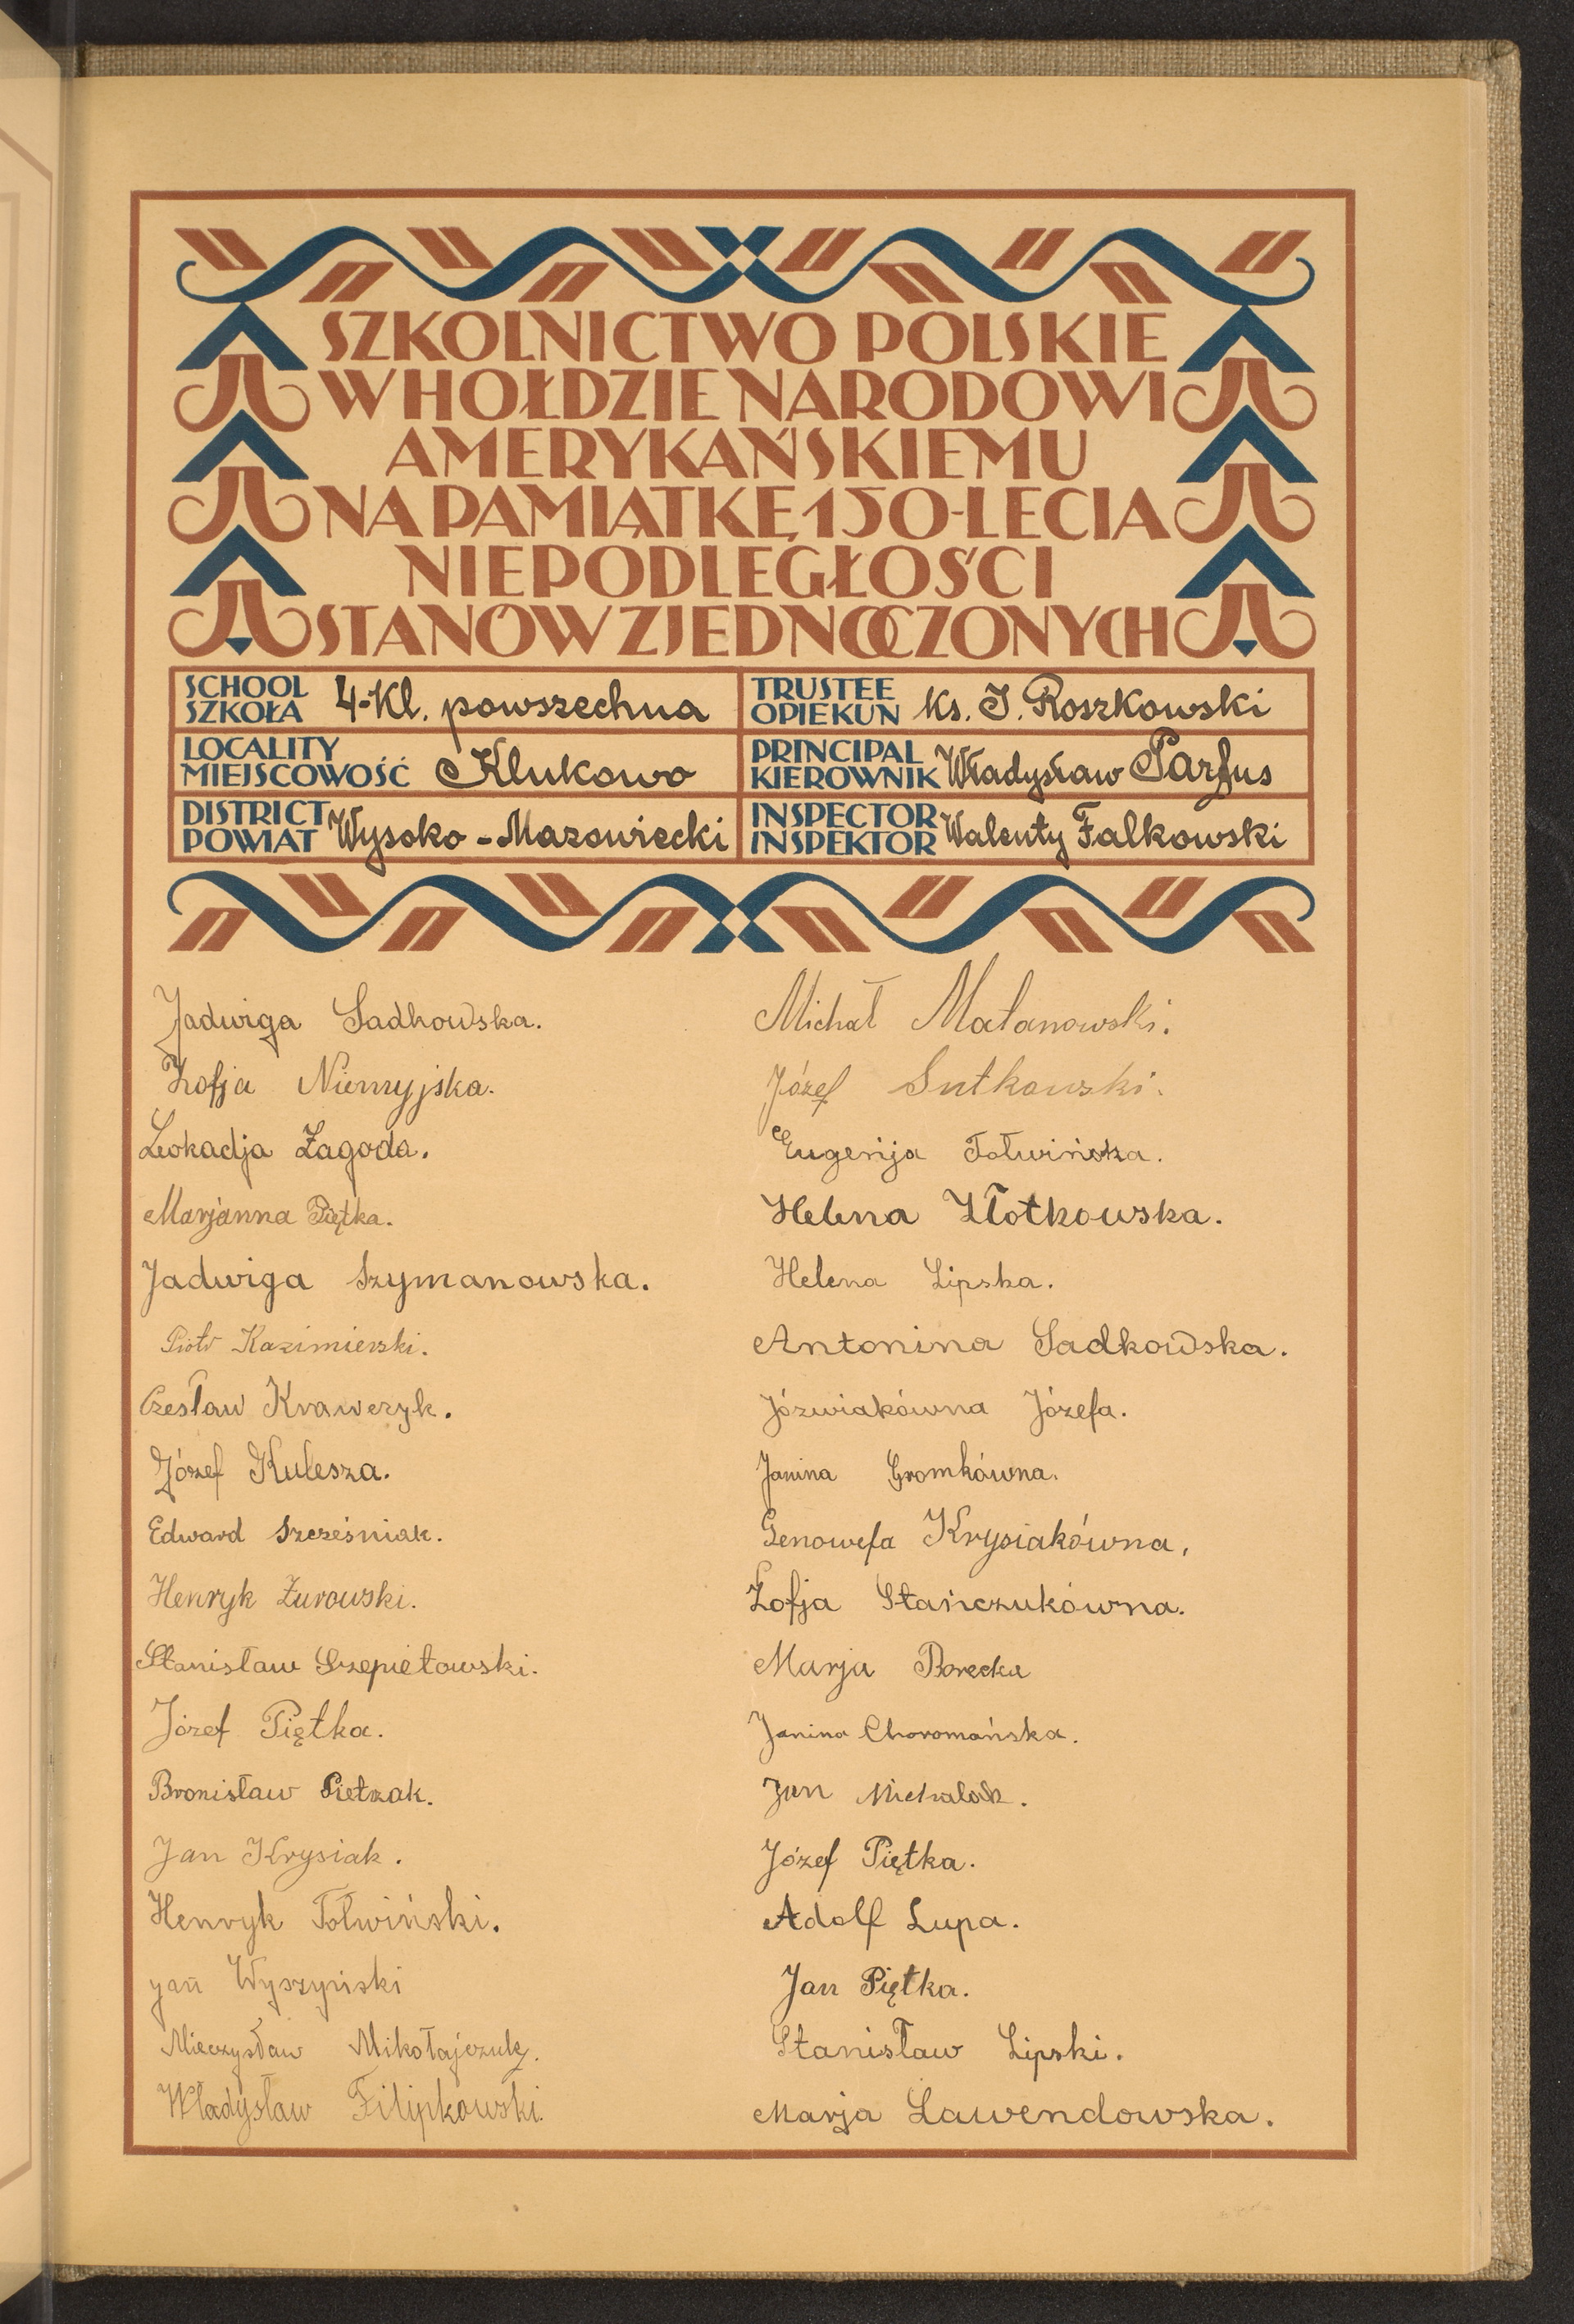 SZKOLNICTWO POLSKIE
W HOŁDZIE NARODOWI
AMERYKAŃSKIEMU
NA PAMIĄTKĘ 150-LECIA
NIEPODLEGŁOŚCI
STANÓW ZJEDNOCZONYCH
SCHOOL
SZKOŁA 4-Kl. powszechna
TRUSTEE
OPIEKUN Ks. J. Roszkowski
LOCALITY
MIEJSCOWOŚĆ Klukowo
PRINCIPAL
KIEROWNIK Władysław Parfus
DISTRICT
POWIAT Wysoko-Mazowiecki
INSPECTOR
INSPEKTOR Walenty Falkowski
Jadwiga Sadkowska.
Zofja Niemyjska.
Leokadja Zagoda.
Marjanna Piętka.
Jadwiga Szymanowska.
Piotr Kazimierski.
Czesław Krawczyk.
Józef Kulesza.
Edward Szcześniak.
Henryk Żurowski.
Stanisław Szepietowski.
Józef Piętka.
Bronisław Pietrzak.
Jan Krysiak.
Henryk Tołwiński.
Jan Wyszyński
Mieczysław Mikołajczuk.
Władysław Filipkowski.
Michał Małanowski.
Józef Sutkowski.
Eugenja Tołwińska.
Helena Złotkowska.
Helena Lipska.
Antonina Sadkowska.
Józwiakówna Józefa.
Janina Gromkówna.
Genowefa Krysiakówna,
Zofja Stańczukówna.
Marja Borecka
Janina Choromańska.
Jan Michalak.
Józef Piętka.
Adolf Lupa.
Jan Piętka.
Stanisław Lipski.
Marja Lawendowska.